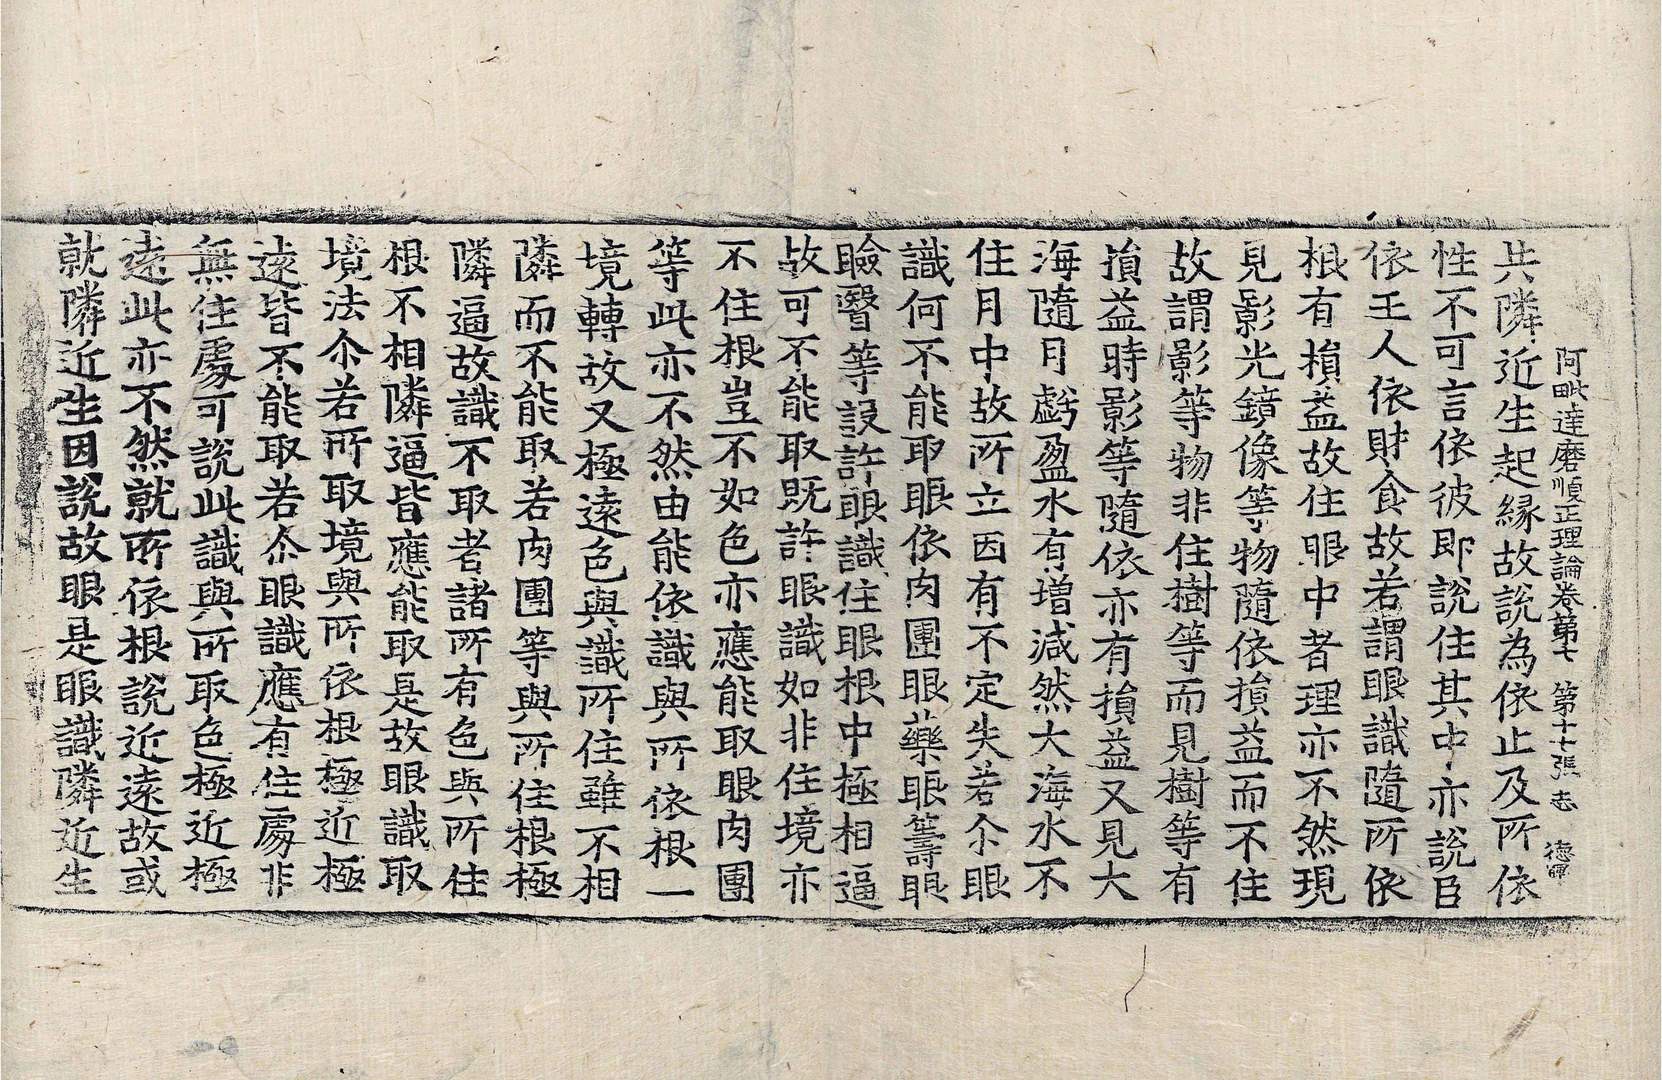 阿毗達磨順正理論卷第七 第十七張 志 德暉
共隣近生起縁故說為依止及所依
性不可言依彼即說住其中亦說臣
依王人依財食故若謂眼識隨所依
根有損益故住眼中者理亦不然現
見影光鏡像等物隨依損益而不住
故謂影等物非住樹等而見樹等有
損益時影等隨依亦有損益又見大
海隨月虧盈水有增減然大海水不
住月中故所立因有不定失若尒眼
識何不能取眼依肉團眼藥眼籌眼
瞼瞖等設許眼識住眼根中極相逼
故可不能取既許眼識如非住境亦
不住根豈不如色亦應能取眼肉團
等此亦不然由能依識與所依根一
境轉故又極遠色與識所住雖不相
隣而不能取若肉團等與所住根極
隣逼故識不取者諸所有色與所住
根不相隣逼皆應能取是故眼識取
境法尒若所取境與所依根極近極
遠皆不能取若尒眼識應有住處非
無住處可說此識與所取色極近極
遠此亦不然就所依根說近遠故或
就隣近生因說故眼是眼識隣近生